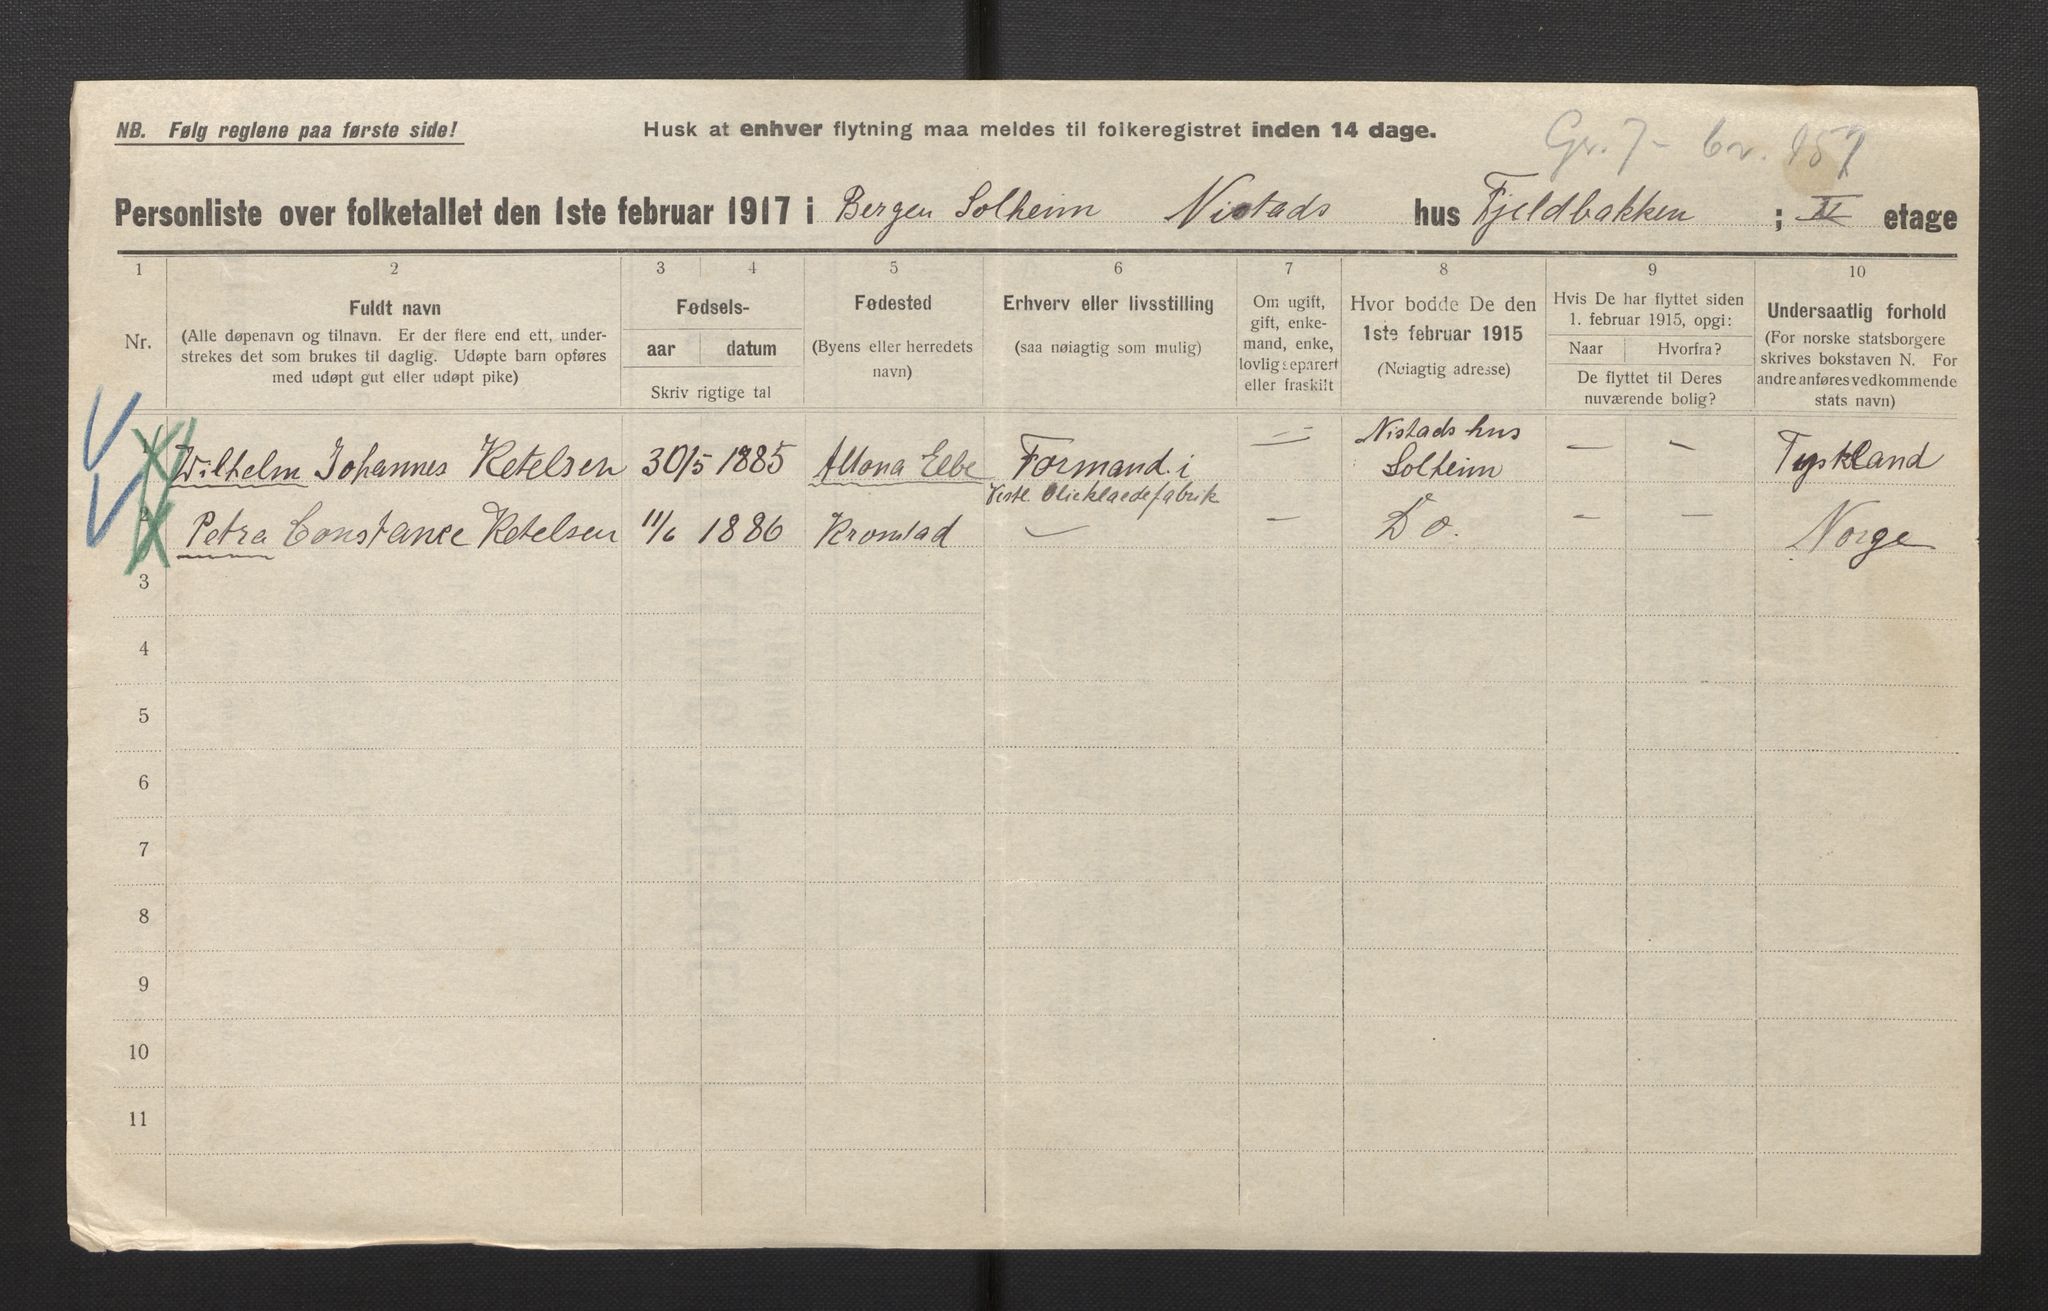 NB. Følg reglene paa første side!
Husk at enhver flytning maa meldes til folkeregistret inden 14 dage.
Gr. 7 - br. 157
Personliste over folketallet den 1ste februar 1917 i Bergen Solheim Nistads hus Fjeldbakken ; II etage
1 2 3 4 5 6 7 8 9 10
Nr.
Fuldt navn
(Alle døpenavn og tilnavn. Er der flere end ett, under-
strekes det som brukes til daglig. Udøpte barn opføres
med udøpt gut eller udøpt pike)
Fødsels-
aar datum
Skriv rigtige tal
Fødested
(Byens eller herredets
navn)
Erhverv eller livsstilling
(saa nøiagtig som mulig)
Om ugift,
gift, enke-
mand, enke,
lovlig separert
eller fraskilt
Hvor bodde De den
1ste februar 1915
(Nøiagtig adresse)
Hvis De har flyttet siden
1. februar 1915, opgi:
Naar Hvorfra?
De flyttet til Deres
nuværende bolig?
Undersaatlig forhold
(For norske statsborgere
skrives bokstaven N. For
andre anføres vedkommende
stats navn)
1 Wilhelm Johannes Ketelsen 30/5 1885 Altona Elbe Formand i — Nistads hus — - Tyskland
Vestl. Olieklaedefabrik Solheim
2 Petra Constance Ketelsen 11/6 1886 Kronstad — - Do. - — Norge
3
4
5
6
7
8
9
10
11